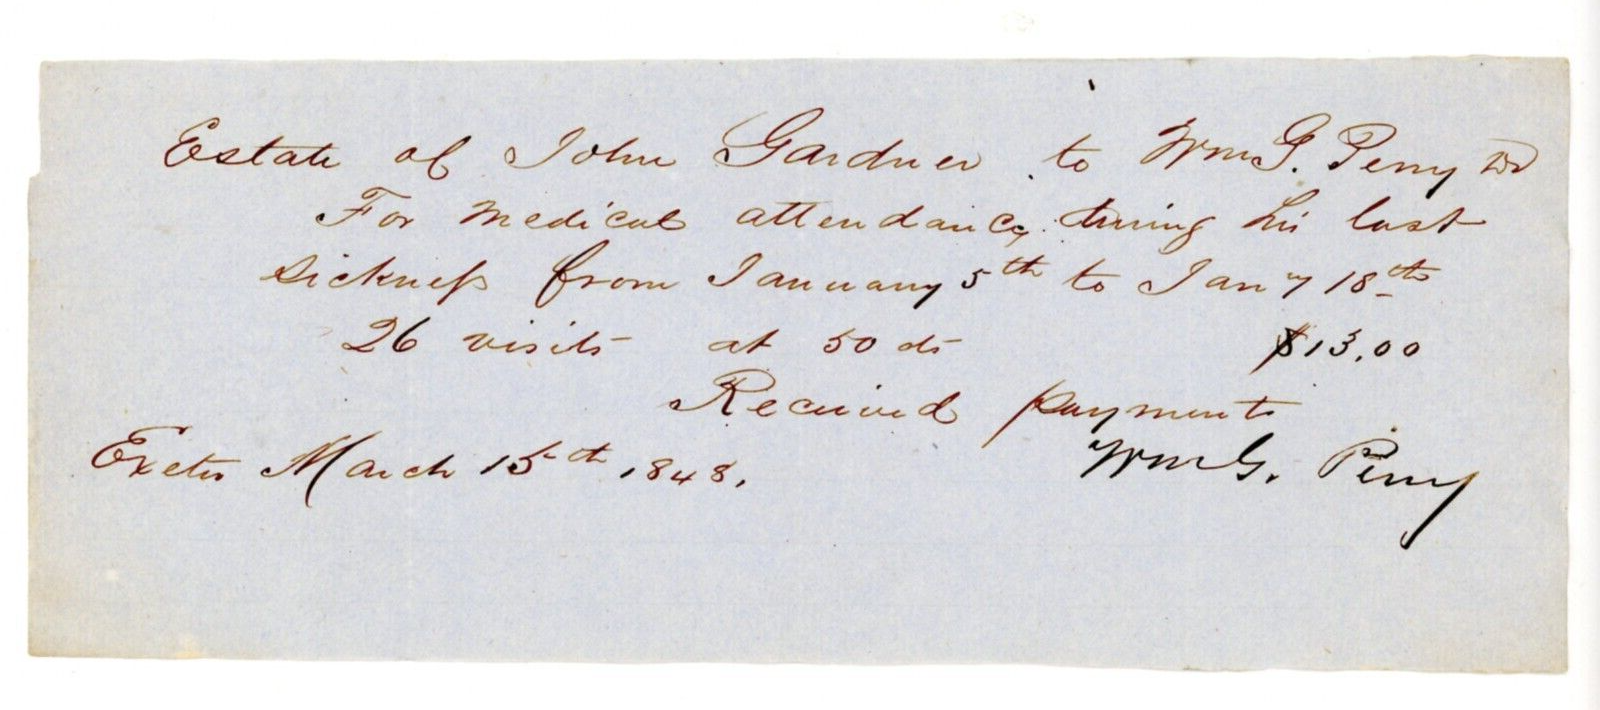 Estate of John Gardner to Wm G. Perry Dr
For medical attendance during his last
sickness from January 5th to Jany 18th
26 visits at 50 cts $13.00
Received payment
Exeter March 15th 1848. Wm G. Perry